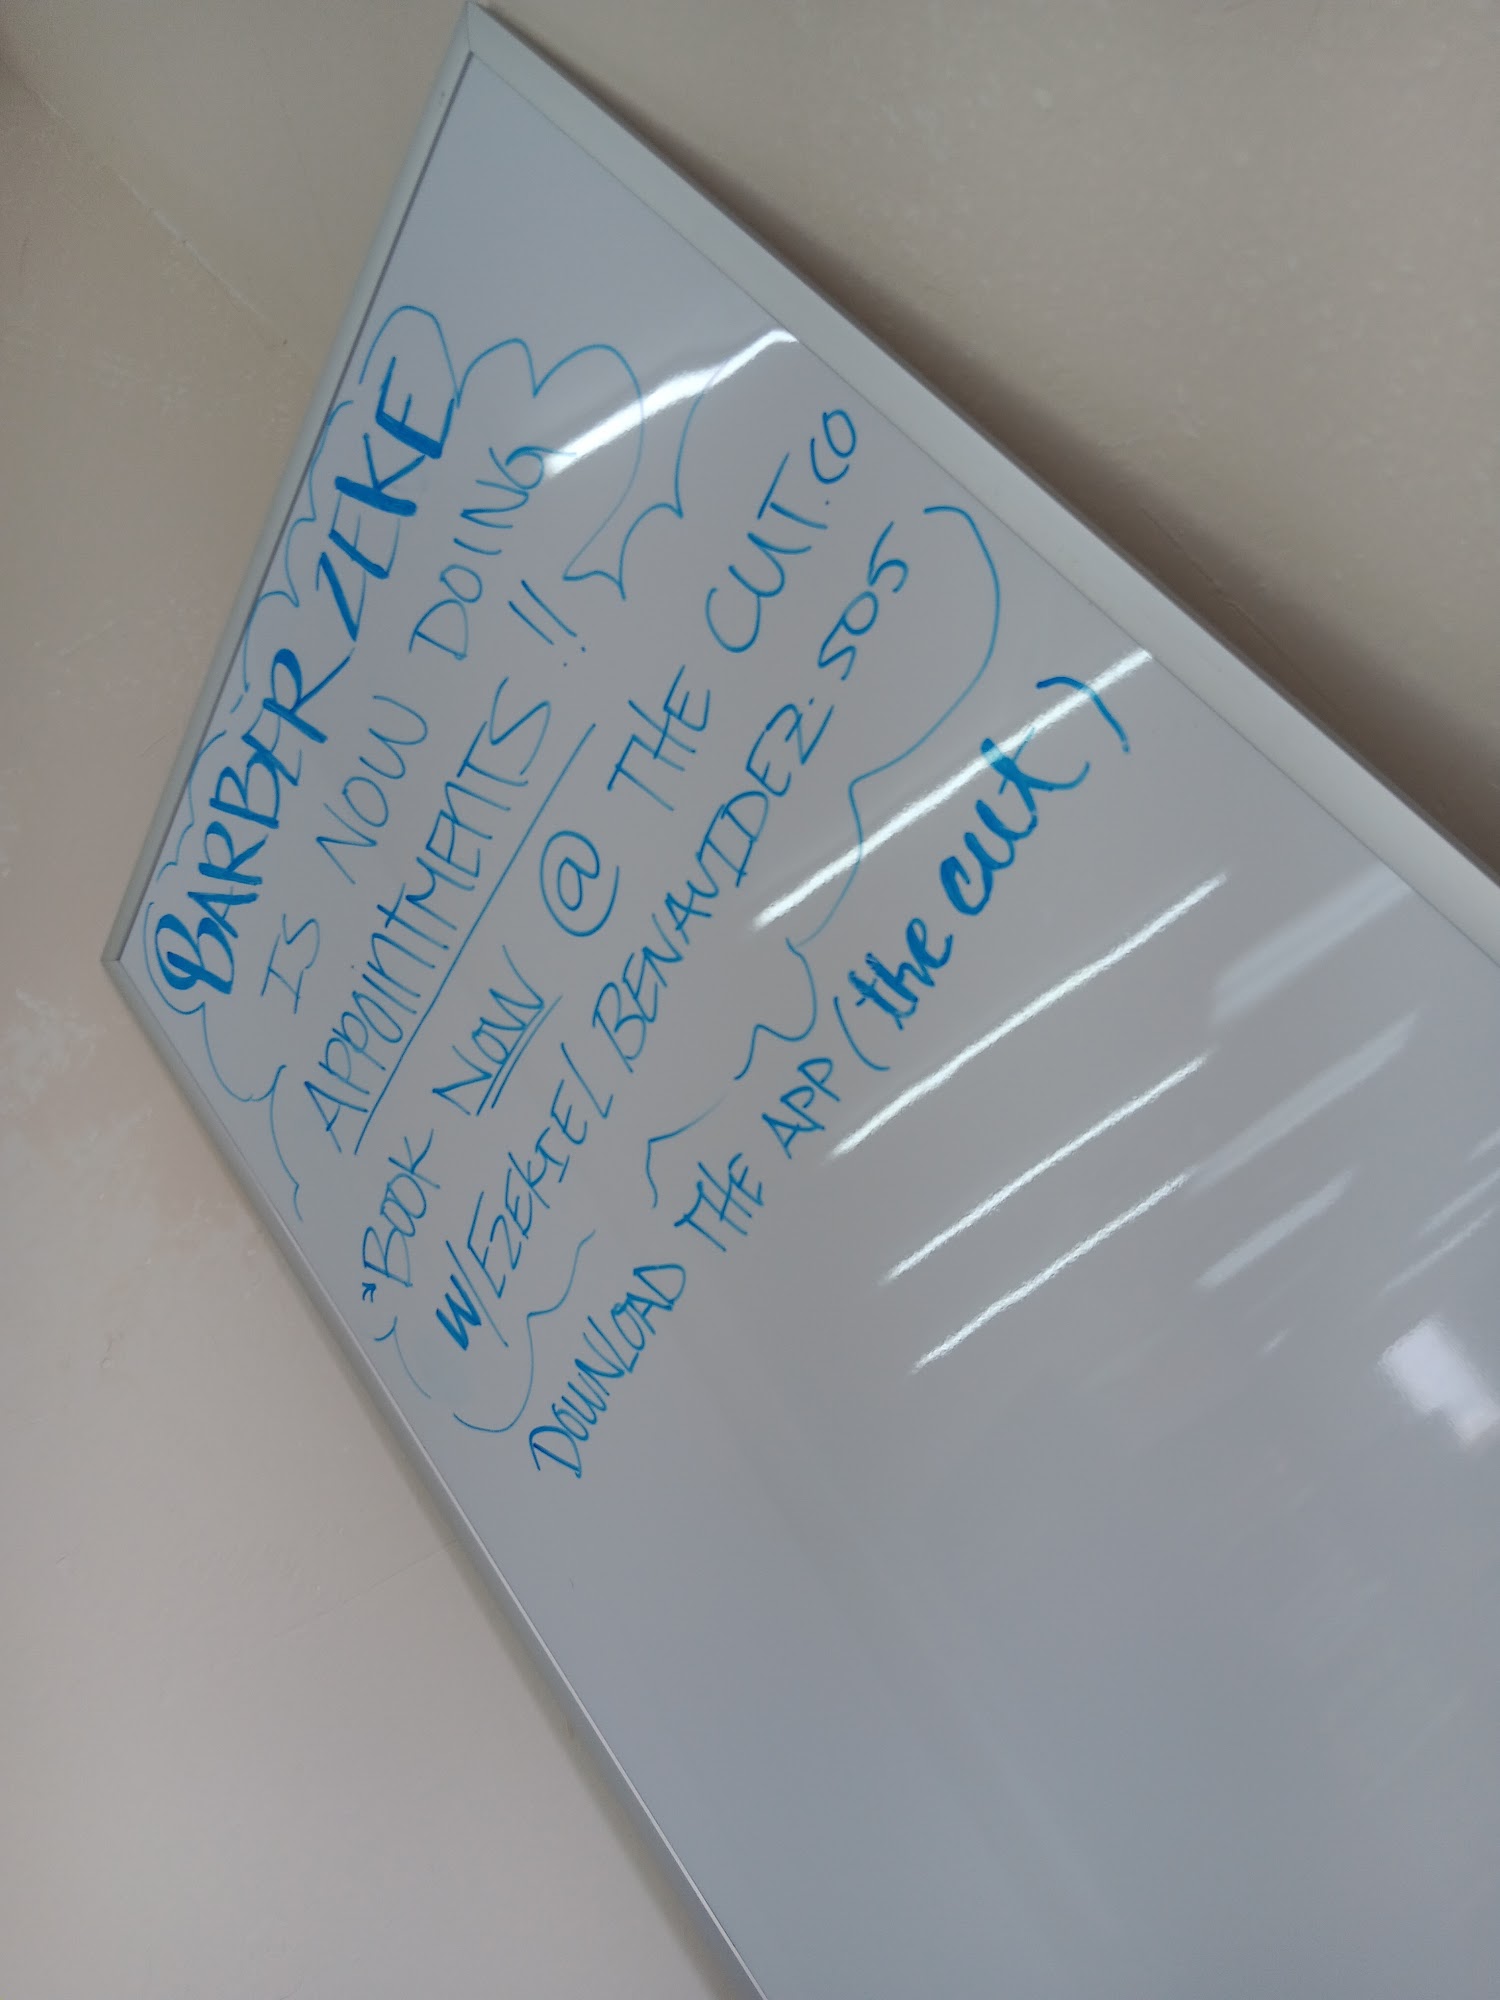 BARBER ZEKE
IS NOW DOING
APPOINTMENTS!!
*BOOK NOW @ THE CUT.CO
W/EZEKIEL BENAVIDEZ.505
DOWNLOAD THE APP (the cut)